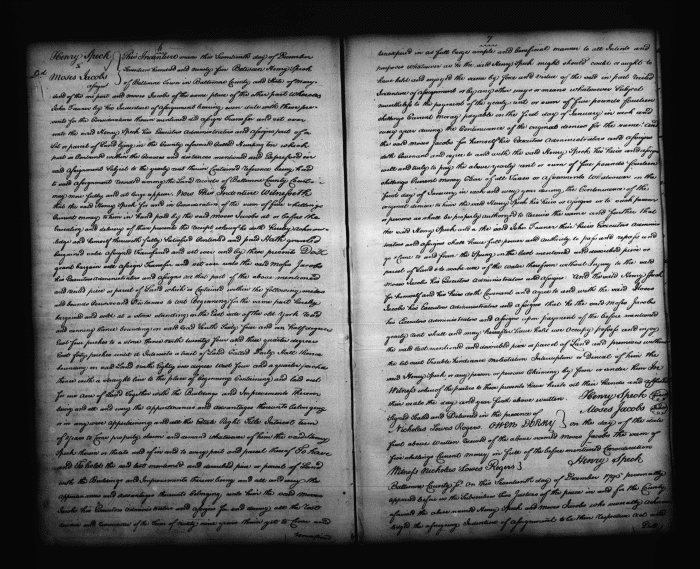 6
Henry Speck
to
Moses Jacobs
This Indenture made this Seventeenth day of December
Seventeen hundred and ninety five Between Henry Speck
of Baltimore Town in Baltimore County and State of Mary
land of the one part and Moses Jacobs of the same place of the other part Whereas
John Tanner by his Indenture of Assignment bearing even date with these pre
sents for the Consideration therein mentioned did assign Transfer and set over
unto the said Henry Speck his Executors Administrators and Assigns part of a
lot or parcel of Land lying in the County aforesaid
part is Contained within the Courses and distances mentioned and Expressed in
said Assignment Subject to the yearly rent therein Contained reference being had
to said Assignment recorded among the Land records of Baltimore County Court
may more fully and at large appear. Now This Indenture Witnesseth
that the said Henry Speck for and in Consideration of the sum of five shillings
Current money to him in hand paid by the said Moses Jacobs at or before the
Sealing and delivery of these presents the receipt whereof he doth hereby acknow
ledge and himself therewith fully Satisfied Contented and paid Hath granted
bargained sold assigned Transferred and set over and by these presents Doth
grant bargain sell assign Transfer and set over unto the said Moses Jacobs
his Executors Administrators and Assigns all that part of the above mentioned
and said piece or parcel of Land which is Contained within the following
Courses and Distances to wit Beginning for the same part hereby
bargained and sold at a stone standing on the East side of the old York Road
and running thence bounding on said road South forty five and an half degrees
East five perches to a stone thence North twenty four and three quarter degrees
East forty perches until it Intersects a tract of Land Called
bounding on said Land North Eighty six degrees West four and a quarter perches
thence with a straight line to the place of beginning Containing and laid out
for one acre of Land Together with the Buildings and Improvements thereon
being and all and every the Appurtenances and advantages thereunto belonging
or in any wise appertaining and all the Estate Right Title Interest term
of Years to Come property claim and demand whatsoever of him the said Henry
Speck therein or thereto and of in and to every part and parcel thereof To have
and To hold the said last mentioned and described piece or parcel of Land
with the Buildings and Improvements thereon being and all and every the
appurtenances and advantages thereunto belonging unto him the said Moses
Jacobs his Executors Administrators and Assigns for and during all the rest
residue and remainder of the term of ninety nine years therein yet to Come and
unexpired
7
unexpired in as full large ample and beneficial manner to all Intents and
purposes whatsoever as he the said Henry Speck might should could or ought to
have held and enjoyed the same by force and virtue of the said in part recited
Indenture of Assignment or by any other ways or means whatsoever Subject
nevertheless to the payment of the yearly rent or sum of five pounds fourteen
shillings Current money payable on the first day of January in each and
every year during the Continuance of the original demise for the same; And
the said Moses Jacobs for himself his Executors Administrators and Assigns
doth Covenant and agree to and with the said Henry Speck his heirs and Assigns
well and truly to pay the above yearly rent or sum of five pounds fourteen
shillings Current money Clear of all Taxes or Assessments Whatsoever on the
first day of January in each and every year during the Continuance of the
original demise to him the said Henry Speck his heirs or Assigns or to such person
or persons as shall be properly Authorized to receive the same and further that
the said Henry Speck and the said John Tanner their heirs Executors Adminis
trators and Assigns shall have full power and authority to pass and repass and
go to and from the Spring on the last mentioned and described piece or
parcel of Land to make use of the water therefrom without Injury to the said
Moses Jacobs his Executors Administrators and Assigns. And the said Henry Speck
for himself and his heirs doth Covenant and Agree to and with the said Moses
Jacobs his Executors Administrators and Assigns that he the said Moses Jacobs
his Executors Administrators and Assigns upon payment of the before mentioned
yearly rent shall and may hereafter have hold use occupy possess and enjoy
the said last mentioned and described piece or parcel of Land and premises without
the let suit Trouble hindrance Molestation Interruption or Denial of him the
said Henry Speck or any person or persons Claiming by from or under him In
Witness whereof the parties to these presents have hereto set their Hands and affixed
their seals the day and year first above written
Henry Speck
Moses Jacobs
Signed Sealed and Delivered in the presence of
Nicholas Lowes Rogers. Owen Dorsey
on the day of the date
first above written received of the above named Moses Jacobs the sum of
five shillings Current money in full of the before mentioned Consideration
Henry Speck
Witness Nicholas Lowes Rogers
Baltimore County Sc. On this Seventeenth day of December 1795 personally
appeared before us the Subscribers two Justices of the peace in and for the County
aforesaid the above named Henry Speck and Moses Jacobs who severally acknow
ledged the aforegoing Indenture of Assignment to be their respective Act and
Deed